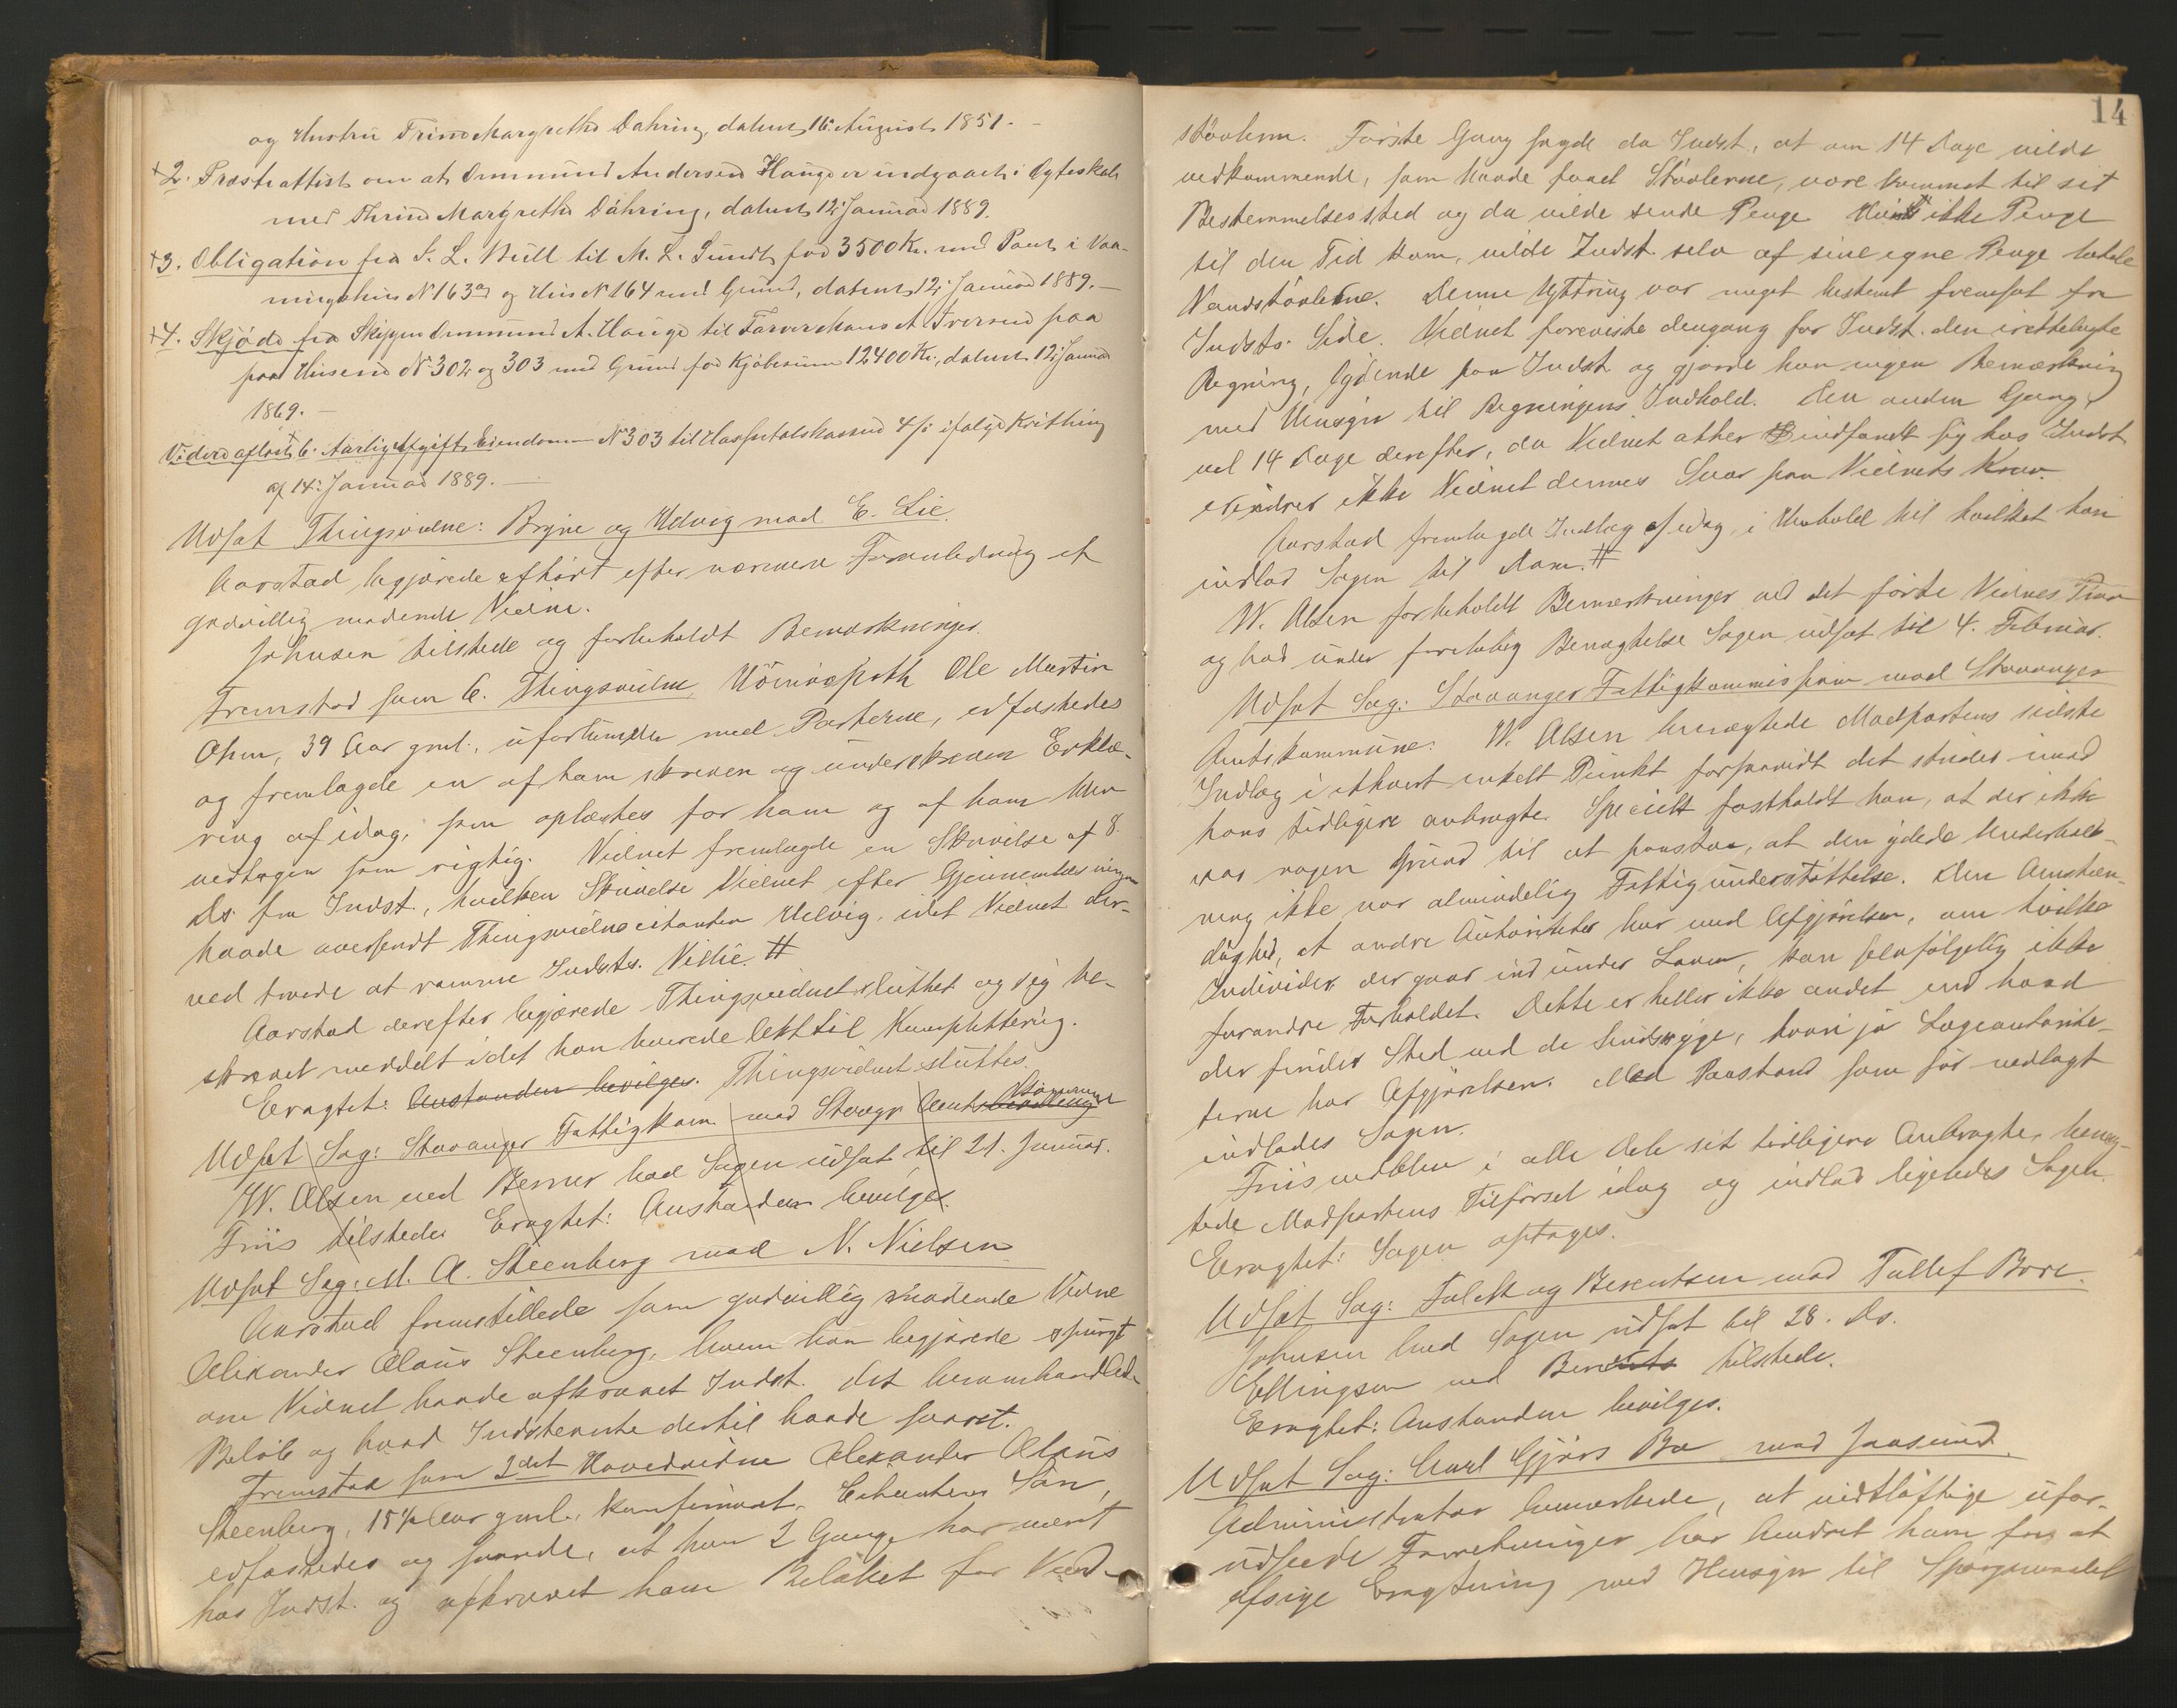 og Hustru Trine Margrethe Dahring, datert 16. August 1851. –
+2. Præsteattest om at Ommund Andersen Hauge er indgaaet i Egteskab
med Thrine Margrethe Dähring, datert 12. Januar 1889.
+3. Obligation fra S. L. Bull til M. L. Sundt for 3500 Kr. med Pant i Vaa-
ningshus No 163a og Hus No 164 med Grund, datert 12. Januar 1889. –
+4. Skjøde fra Skipper Ommund A. Hauge til Farver Hans A. Iversen paa
paa Husene No 302 og 303 med Grund for Kjøbesum 12400 Kr., datert 12. Januar
1869. –
Videre aflæst 6. Aarlig Afgift Eiendommen No 303 til Hospitalskassen 4/- ifølge Kvittering
af 14. Januar 1889. –
Udsat Thingsvidne: Bryne og Helvig mod E. Lie.
Aarstad begjærede afhørt efter nærmere Foranledning et
godvillig mødende Vidne.
Johnsen tilstede og forbeholdt Bemærkninger.
Fremstod som 6. Thingsvidne Homöopath Ole Martin
Olsen, 39 Aar gml., uforbunden med Parterne, edfæstedes
og fremlagde en af ham skreven og underskreven Erklæ-
ring af idag, som oplæstes for ham og af ham blev
vedtagen som rigtig. Vidnet fremlagde en Skrivelse af 8.
Ds. fra Indst., hvilken Skrivelse Vidnet efter Gjennemlæsningen
havde oversendt Thingsvidnecitanten Helvig, idet Vidnet der-
ved troede at ramme Indsts. Villie. #
Aarstad derefter begjærede Thingsvidnet sluttet og sig be-
skrevet meddelt idet han leverede lækt til Komplettering.
Eragtet: Anstanden bevilges. Thingsvidnet sluttes.
Udsat Sag: Stavanger Fattigkom. mod Stavgr. Amtskommune
W. Olsen ved Berner bad Sagen udsat til 21. Januar.
Friis tilstede. Eragtet: Anstanden bevilges.
Udsat Sag: M. A. Steenberg mod N. Nielsen
Aarstad fremstillede som godvillig mødende Vidne
Alexander Olaus Steenberg, hvem han begjærede spurgt
om Vidnet havde afkrævet Indst. det heromhandlede
Beløb og hvad Indstevnte dertil havde svaret.
Fremstod som 2det Hovedvidne Alexander Olaus
Steenberg, 15 1/2 Aar gml., konfirmeret, Citantens Søn,
edfæstedes og svarede, at han 2 Gange har været
hos Indst. og afkrævet ham Beløbet for Vand-
14
støvlerne. Første Gang sagde da Indst., at om 14 Dage vilde
vedkommende, som havde faaet Støvlerne, være kommet til sit
Bestemmelsessted og da vilde sende Penge. Hvis ikke Penge
til den Tid kom, vilde Indst. selv af sine egne Penge betale
Vandstøvlerne. Denne Yttring var meget bestemt fremsat fra
Indsts. Side. Vidnet foreviste dengang for Indst. den irettelagte
Regning, lydende paa Indst. og gjorde han ingen Bemærkning
med Hensyn til Regningens Indhold. Den anden Gang,
vel 14 Dage derefter, da Vidnet atter indfandt sig hos Indst.
erindrer ikke Vidnet dennes Svar paa Vidnets Krav.
Aarstad fremlagde Indlæg af idag, i Henhold til hvilket han
indlod Sagen til Dom. #
W. Olsen forbeholdt Bemærkninger ved det første Vidnes Prov
og bad under foreløbig Benægtelse Sagen udsat til 4. Februar.
Udsat Sag: Stavanger Fattigkommission mod Stavanger
Amtskommune. W. Olsen benægtede Modpartens sidste
Indlæg i ethvert enkelt Punkt forsaavidt det strider imod
hans tidligere anbragte. Specielt fastholdt han, at der ikke
var nogen Grund til at paastaa, at den ydede Underhold-
ning ikke var almindelig Fattigunderstøttelse. Den Omstæn-
dighed, at andre Autoriteter har med Afgjørelsen, om hvilke
Individer der gaar ind under Loven, kan selvfølgelig ikke
forandre Forholdet. Dette er heller ikke andet end hvad
der finder Sted ved de Sindssyge, hvori jo Lægeautorite-
terne har Afgjørelsen. Med Paastand som før nedlagt
indlodes Sagen.
Friis vedblev i alle Dele sit tidligere Anbragte, benæg-
tede Modpartens Tilførsel idag og indlod ligeledes Sagen.
Eragtet: Sagen optages.
Udsat Sag: Falck og Berentsen mod Tallef Bore.
Johnsen bad Sagen udsat til 28. Ds.
Ellingsen ved Berents tilstede.
Eragtet: Anstanden bevilges.
Udsat Sag: Carl Gjörs Bo mod Jaasund.
Administrator bemærkede, at vidtløftige ufor-
udseede Forretninger har hindret ham fra at
afsige Eragtning med Hensyn til Spørgsmaalet